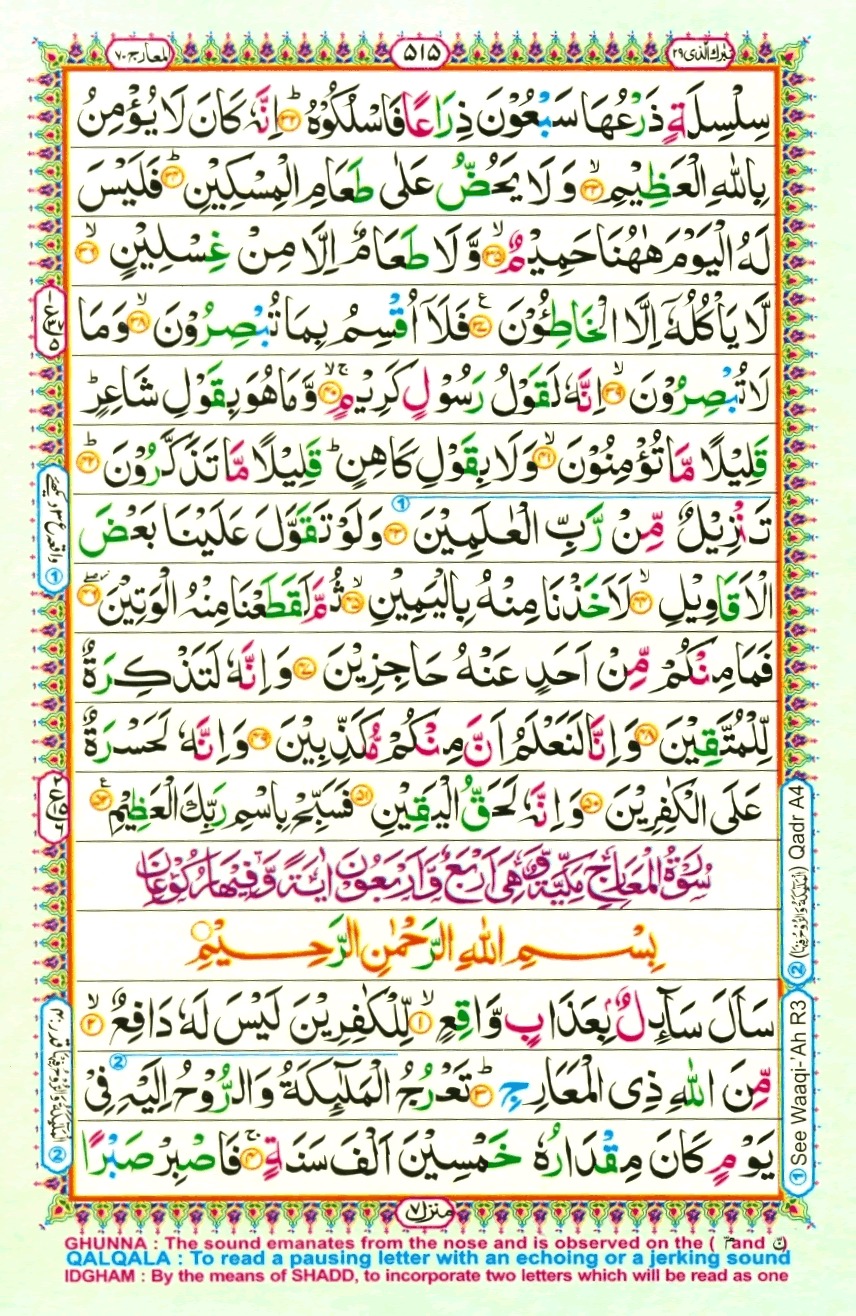 تبٰرك الذی ۲۹
۵۱۵
المعارج ۷۰
سِلْسِلَةٍ ذَرْعُهَا سَبْعُوْنَ ذِرَاعًا فَاسْلُكُوْهُ ؕ۳۲ اِنَّهٗ كَانَ لَا يُؤْمِنُ
بِاللّٰهِ الْعَظِيْمِ ۙ۳۳ وَ لَا يَحُضُّ عَلٰى طَعَامِ الْمِسْكِيْنِ ؕ۳۴ فَلَيْسَ
لَهُ الْيَوْمَ هٰهُنَا حَمِيْمٌ ۙ۳۵ وَّ لَا طَعَامٌ اِلَّا مِنْ غِسْلِيْنٍ ۙ۳۶
لَّا يَاْكُلُهٗۤ اِلَّا الْخَاطِـُٔوْنَ ۳۷ع فَلَاۤ اُقْسِمُ بِمَا تُبْصِرُوْنَ ۙ۳۸ وَ مَا
لَا تُبْصِرُوْنَ ۙ۳۹ اِنَّهٗ لَقَوْلُ رَسُوْلٍ كَرِيْمٍ ۚۙ۴۰ وَّ مَا هُوَ بِقَوْلِ شَاعِرٍ ؕ
قَلِيْلًا مَّا تُؤْمِنُوْنَ ۙ۴۱ وَ لَا بِقَوْلِ كَاهِنٍ ؕ قَلِيْلًا مَّا تَذَكَّرُوْنَ ؕ۴۲
تَنْزِيْلٌ مِّنْ رَّبِّ الْعٰلَمِيْنَ ۴۳ ① وَ لَوْ تَقَوَّلَ عَلَيْنَا بَعْضَ
الْاَقَاوِيْلِ ۙ۴۴ لَاَخَذْنَا مِنْهُ بِالْيَمِيْنِ ۙ۴۵ ثُمَّ لَقَطَعْنَا مِنْهُ الْوَتِيْنَ ۖ۴۶
فَمَا مِنْكُمْ مِّنْ اَحَدٍ عَنْهُ حَاجِزِيْنَ ۴۷ وَ اِنَّهٗ لَتَذْكِرَةٌ
لِّلْمُتَّقِيْنَ ۴۸ وَ اِنَّا لَنَعْلَمُ اَنَّ مِنْكُمْ مُّكَذِّبِيْنَ ۴۹ وَ اِنَّهٗ لَحَسْرَةٌ
عَلَى الْكٰفِرِيْنَ ۵۰ وَ اِنَّهٗ لَحَقُّ الْيَقِيْنِ ۵۱ فَسَبِّحْ بِاسْمِ رَبِّكَ الْعَظِيْمِ ۵۲ع
سُوْرَةُ الْمَعَارِجِ مَكِّيَّةٌ وَّهِىَ اَرْبَعٌ وَّاَرْبَعُوْنَ اٰيَةً وَّفِيْهَا رُكُوْعَانِ
بِسْمِ اللّٰهِ الرَّحْمٰنِ الرَّحِيْمِ
سَاَلَ سَآىِٕلٌۢ بِعَذَابٍ وَّاقِعٍ ۙ۱ لِّلْكٰفِرِيْنَ لَيْسَ لَهٗ دَافِعٌ ۙ۲
مِّنَ اللّٰهِ ذِى الْمَعَارِجِ ؕ۳ ② تَعْرُجُ الْمَلٰٓىِٕكَةُ وَ الرُّوْحُ اِلَيْهِ فِىْ
يَوْمٍ كَانَ مِقْدَارُهٗ خَمْسِيْنَ اَلْفَ سَنَةٍ ۚ۴ فَاصْبِرْ صَبْرًا
① See Waaqi-'Ah R3
② (الملٰٓىِٕكة والروح فيها) Qadr A4
منزل ۷
GHUNNA : The sound emanates from the nose and is observed on the ( مّ and نّ )
QALQALA : To read a pausing letter with an echoing or a jerking sound
IDGHAM : By the means of SHADD, to incorporate two letters which will be read as one